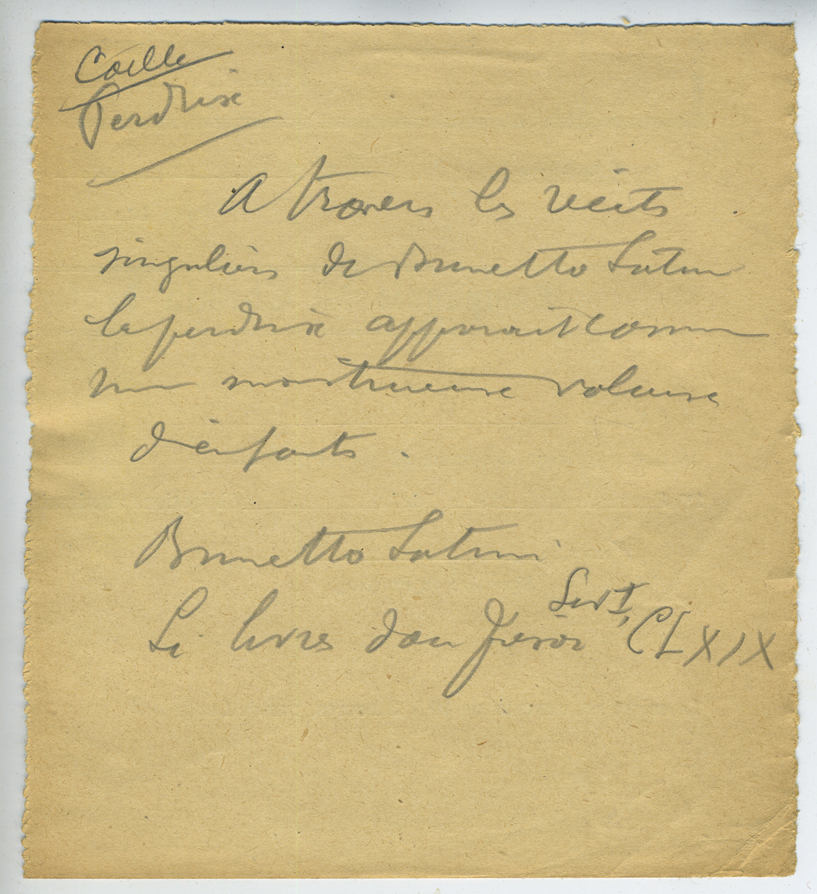 Caille
Perdrix
A travers les récits
singuliers de Brunetto Latini
la perdrix apparait comme
une monstrueuse voleuse
d'enfants.
Brunetto Latini
Li livres dou Tresor Livre I, CLXIX